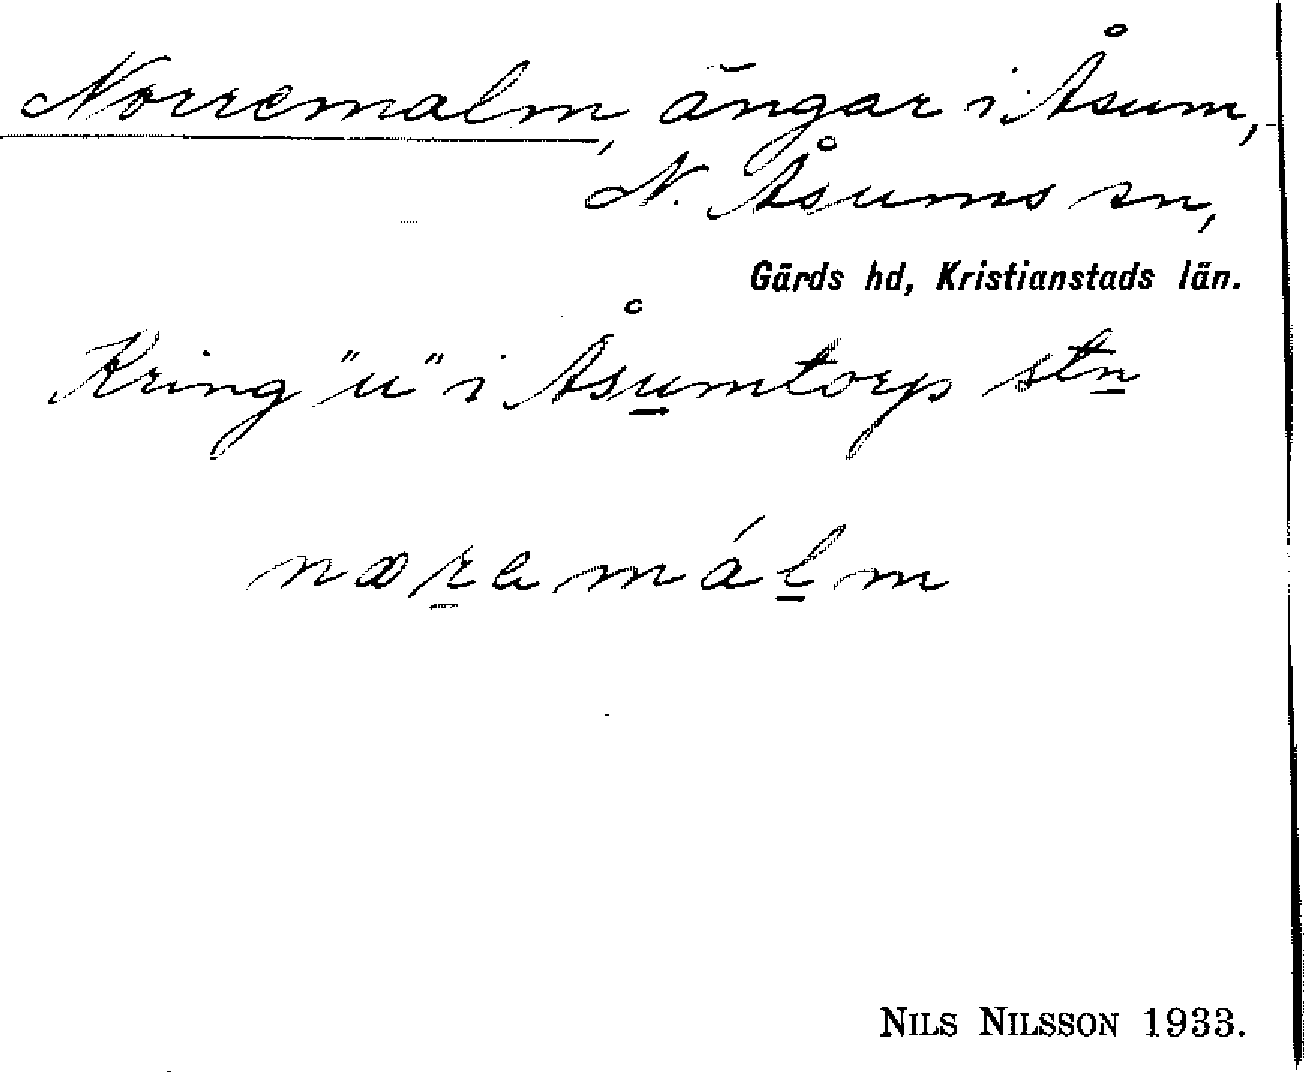 Norremalm, ängar i Åsum,
N. Åsums sn,
Gärds hd, Kristianstads län.
Kring "u" i Åsumtorp stn
nœremálm
NILS NILSSON 1933.